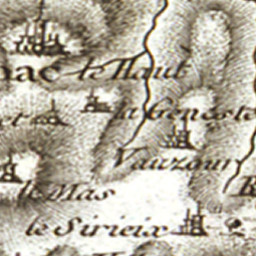 nac le Haut
et la Geneste
Vauzour
R
le Mas
le Sirieix